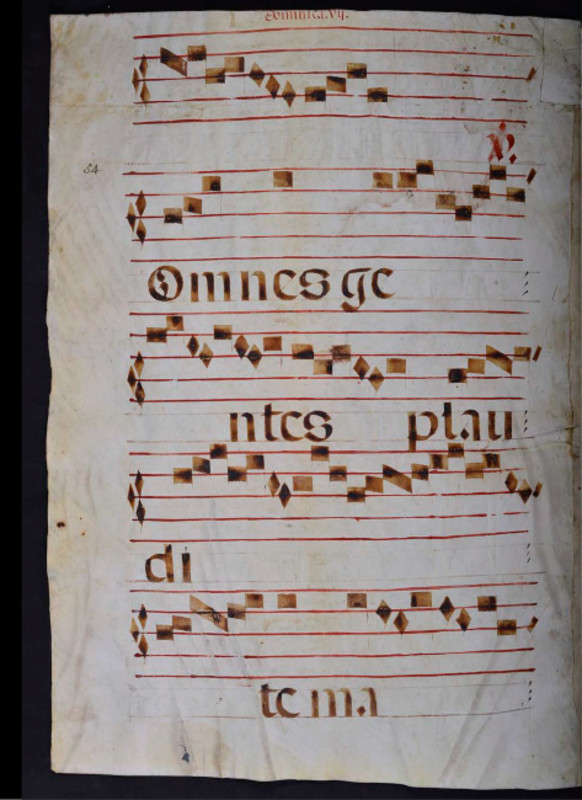 Dominica. vij.
℣.
54
Omnes ge
ntes plau
di
te ma